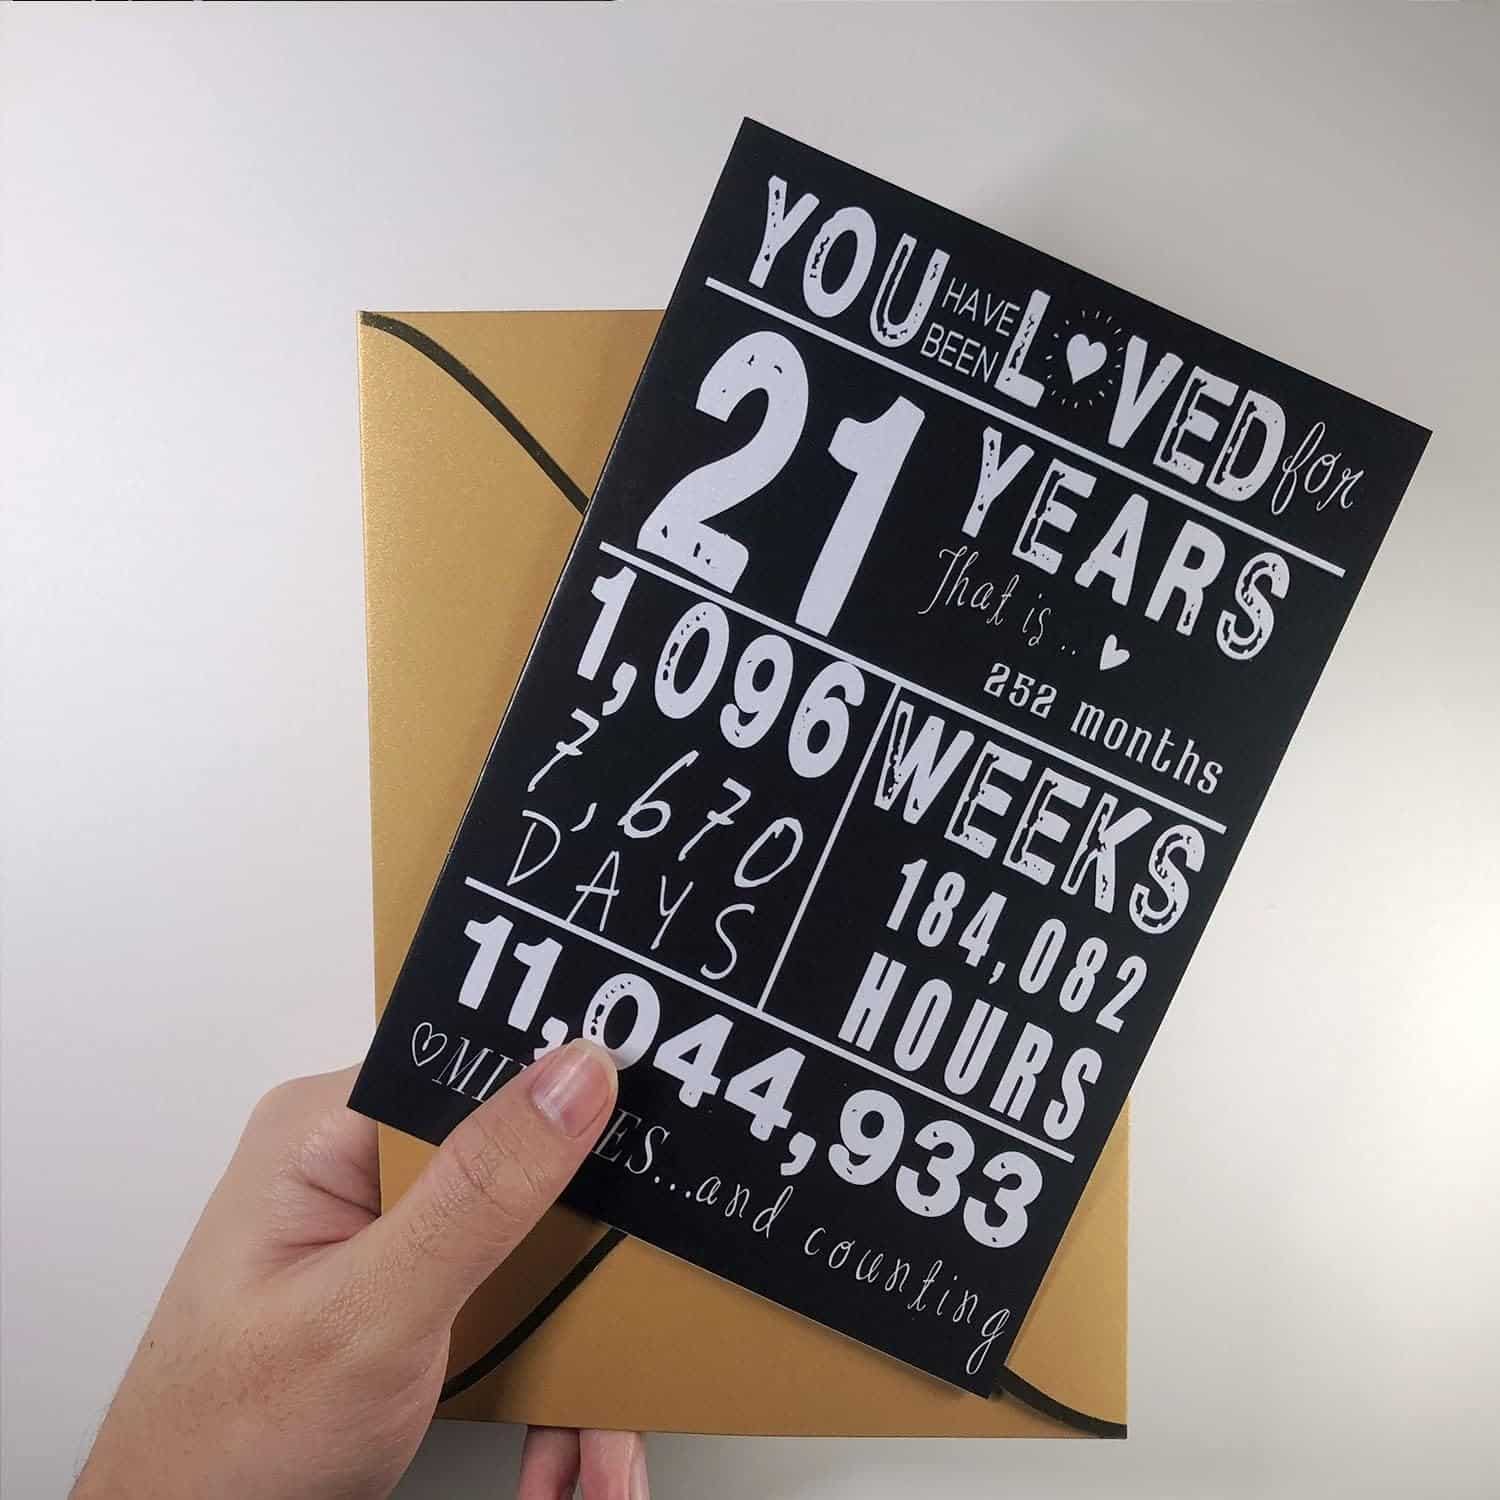 YOU HAVE BEEN LOVED for
21 YEARS
That is...
252 months
1,096 WEEKS
7,670 DAYS
184,082 HOURS
11,044,933
...and counting